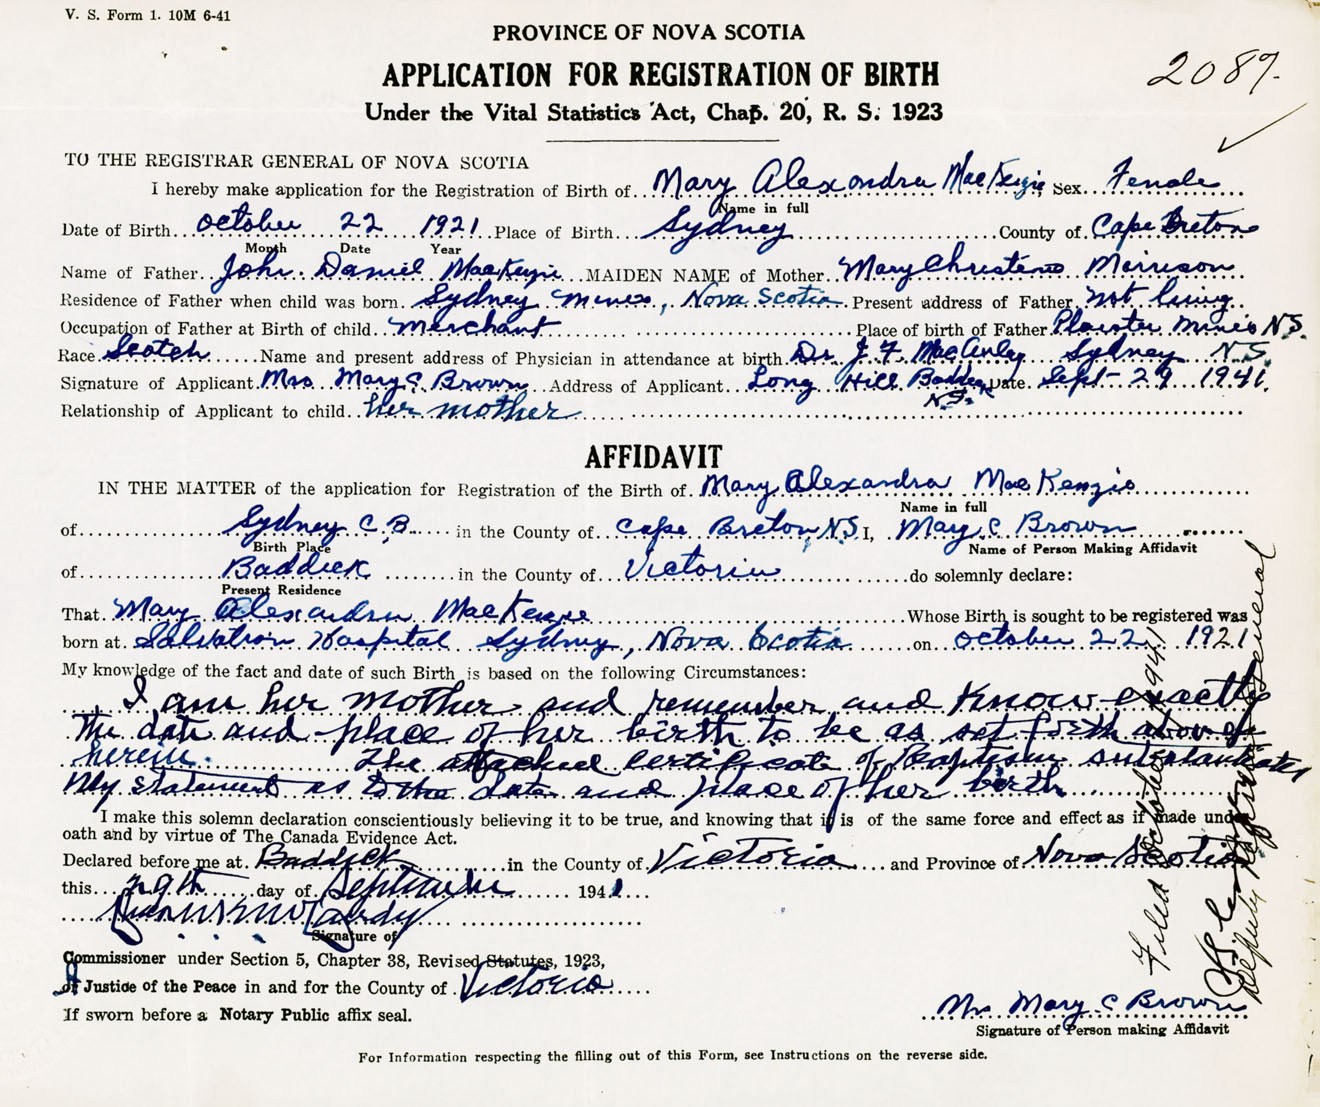 V. S. Form 1. 10M 6-41
PROVINCE OF NOVA SCOTIA
2089.
APPLICATION FOR REGISTRATION OF BIRTH
Under the Vital Statistics Act, Chap. 20, R. S. 1923
TO THE REGISTRAR GENERAL OF NOVA SCOTIA
I hereby make application for the Registration of Birth of Mary Alexandra MacKenzie Sex Female
Name in full
Date of Birth October 22 1921 Place of Birth Sydney County of Cape Breton
Month Date Year
Name of Father John Daniel MacKenzie MAIDEN NAME of Mother Mary Christene Morrison
Residence of Father when child was born Sydney Mines, Nova Scotia Present address of Father Not living
Occupation of Father at Birth of child Merchant Place of birth of Father Plaister Mines N.S.
Race Scotch Name and present address of Physician in attendance at birth Dr. J. F. MacAuley Sydney N.S.
Signature of Applicant Mrs Mary C. Brown Address of Applicant Long Hill Baddeck Date Sept- 29 1941.
N.S.
Relationship of Applicant to child her mother
AFFIDAVIT
IN THE MATTER of the application for Registration of the Birth of Mary Alexandra MacKenzie
Name in full
of Sydney C.B. in the County of Cape Breton, N.S. I, Mary C Brown
Birth Place Name of Person Making Affidavit
of Baddeck in the County of Victoria do solemnly declare:
Present Residence
That Mary Alexandra MacKenzie Whose Birth is sought to be registered was
born at Salvation Hospital Sydney, Nova Scotia on October 22 1921
My knowledge of the fact and date of such Birth is based on the following Circumstances:
I am her mother and remember and know exactly
the date and place of her birth to be as set forth above
herein. The attached certificate of Baptism substantiates
my statement as to the date and place of her birth
I make this solemn declaration conscientiously believing it to be true, and knowing that it is of the same force and effect as if made under
oath and by virtue of The Canada Evidence Act.
Declared before me at Baddeck in the County of Victoria and Province of Nova Scotia
this 29th day of September 1941
Signature of
Commissioner under Section 5, Chapter 38, Revised Statutes, 1923,
of Justice of the Peace in and for the County of Victoria
If sworn before a Notary Public affix seal.
Mrs Mary C Brown
Signature of Person making Affidavit
For Information respecting the filling out of this Form, see Instructions on the reverse side.
Filed October 1941
Deputy Registrar General